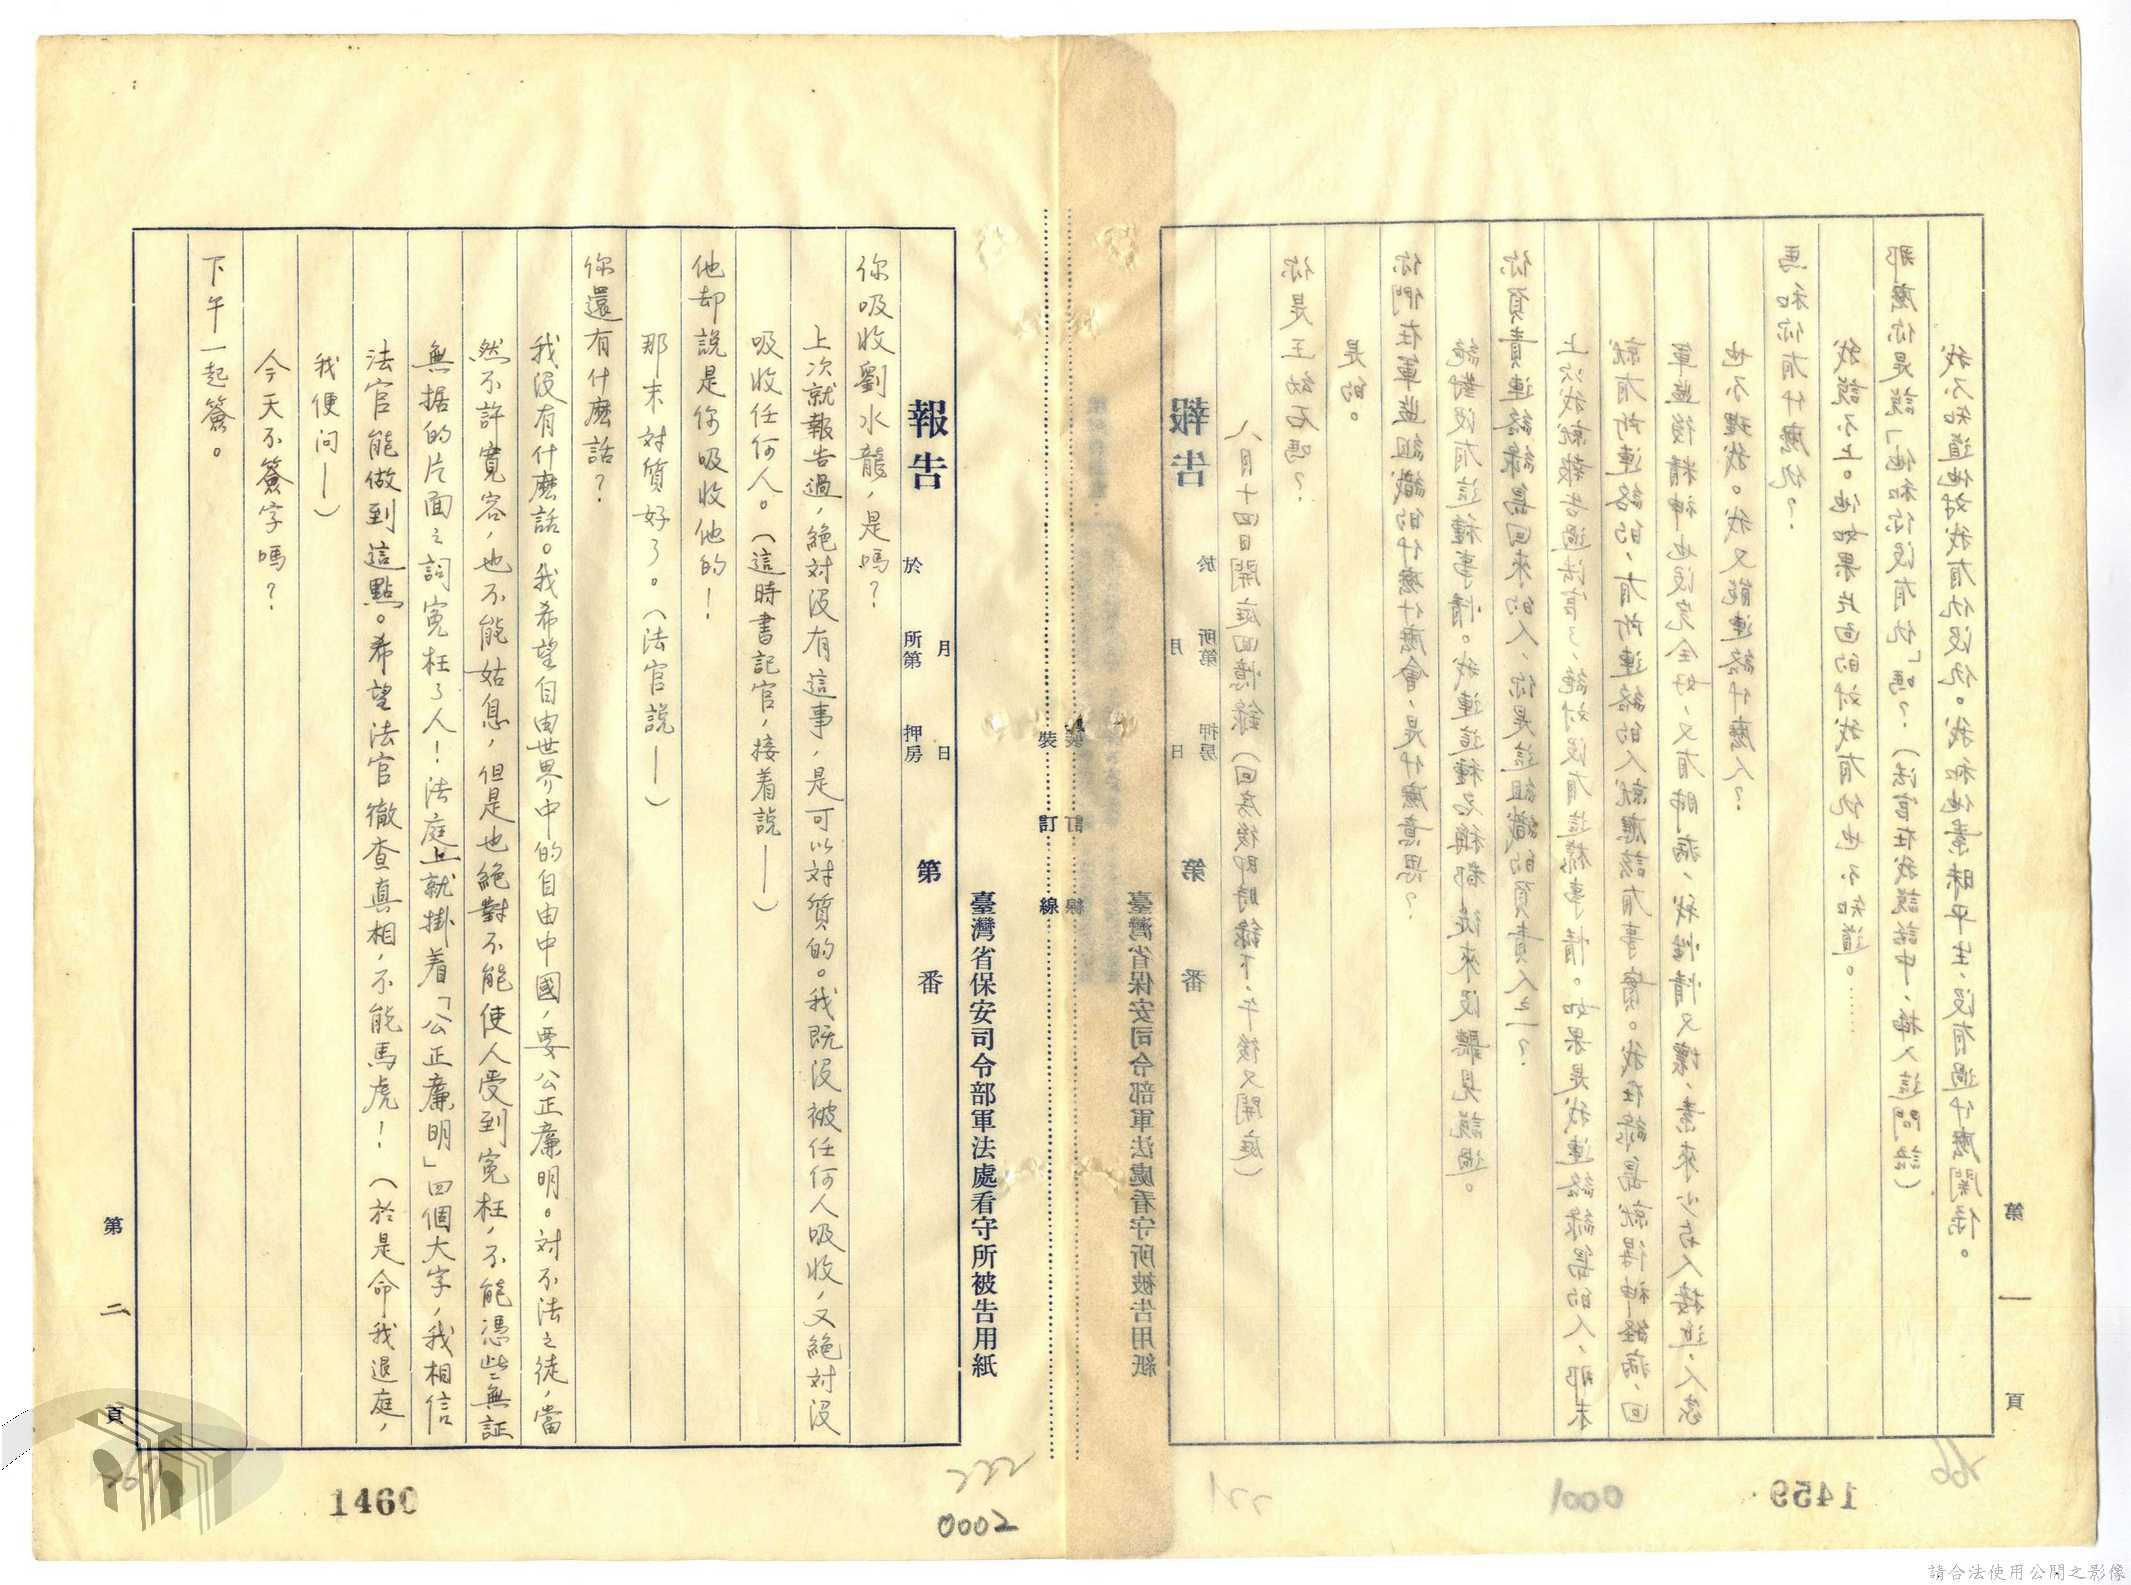 報告 於 月 日 所第 押房 第 番
八月十四日開庭回憶錄（回房後即時錄下，午後又開庭）
你是王 石嗎？
是的。
你們在軍監組織的什麼什麼會，是什麼意思？
絕對沒有這種事情。我連這種名稱都從來沒聽見說過。
你負責連絡綠島回來的人，你是這組織的負責人之一？
上次我就報告過法官了，絕对沒有這樣事情。如果是我連絡綠島的人，那末
就有所連絡的，有所連絡的人就應該有事實。我在綠島就得神經病，回
軍監後精神也沒完全好，又有肺病，我性情又壞，素來少与人接近，人家
也不理我。我又能連絡什麼人？
馬和你有什麼仇？
我說不上。他如果片面的对我有仇也不知道。……
那麼你是說「他和你沒有仇」嗎？（法官在我說話中，插入這問話）
我不知道他对我有仇沒仇。我和他素昧平生，沒有過什麼関係。
第 一 頁
臺灣省保安司令部軍法處看守所被告用紙
1459
0001
221
266
裝 訂 線
裝 訂 線
臺灣省保安司令部軍法處看守所被告用紙
報告 於 月 日 所第 押房 第 番
你吸收劉水龍，是嗎？
上次就報告過，絕对沒有這事，是可以対質的。我既沒被任何人吸收，又絕対沒
吸收任何人。（這時書記官，接着說——）
他却說是你吸收他的！
那末対質好了。（法官說——）
你還有什麽話？
我沒有什麽話。我希望自由世界中的自由中國，要公正廉明。对不法之徒，當
然不許寬容，也不能姑息，但是也絕對不能使人受到冤枉，不能憑些無証
無据的片面之詞冤枉了人！法庭上就掛着「公正廉明」四個大字，我相信
法官能做到這點。希望法官徹查真相，不能馬虎！（於是命我退庭，
我便问——）
今天不簽字嗎？
下午一起簽。
第 二 頁
1460
222
0002
請合法使用公開之影像